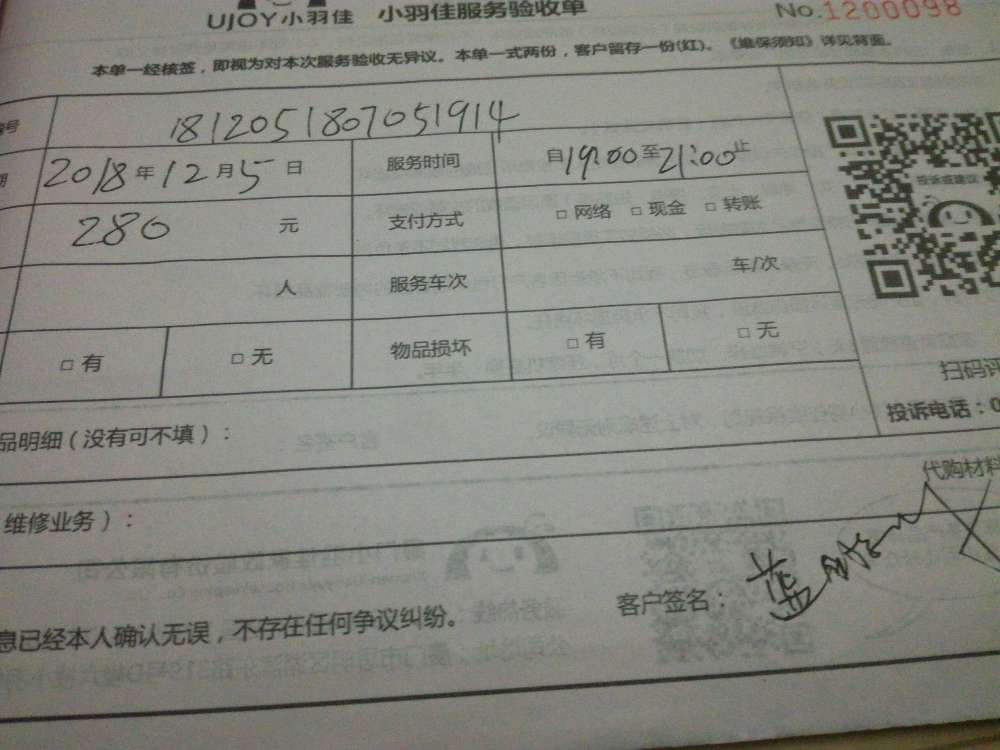 UJOY小羽佳 小羽佳服务验收单 No.1200098
本单一经核签，即视为对本次服务验收无异议。本单一式两份，客户留存一份(红)。《维保须知》详见背面。
号 1812051807051914
2018年12月5日 服务时间 自19:00至21:00止
280 元 支付方式 □网络 □现金 □转账
人 服务车次 车/次
□有 □无 物品损坏 □有 □无
投诉或建议
扫码评
投诉电话：0
品明细（没有可不填）：
代购材料
维修业务）：
息已经本人确认无误，不存在任何争议纠纷。
客户签名：蓝